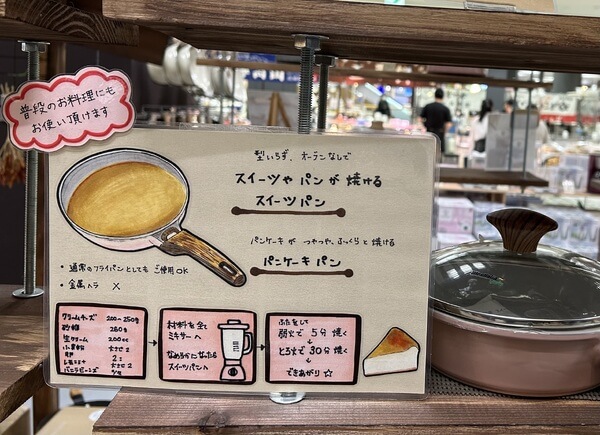 普段のお料理にも
お使い頂けます
型いらず、オーブンなしで
スイーツや パンが 焼ける
スイーツパン
パンケーキが つやつや、ふっくらと 焼ける
パンケーキ パン
・通常のフライパンとしても ご使用OK
・金属ヘラ ×
クリームチーズ 200〜250g
砂糖 280g
生クリーム 200cc
小麦粉 大さじ2
卵 2コ
レモン汁 大さじ2
バニラビーンズ 少々
材料を全て
ミキサーへ
なめらかになったら
スイーツパンへ
ふたをして
弱火で 5分 焼く
とろ火で 30分 焼く
できあがり☆